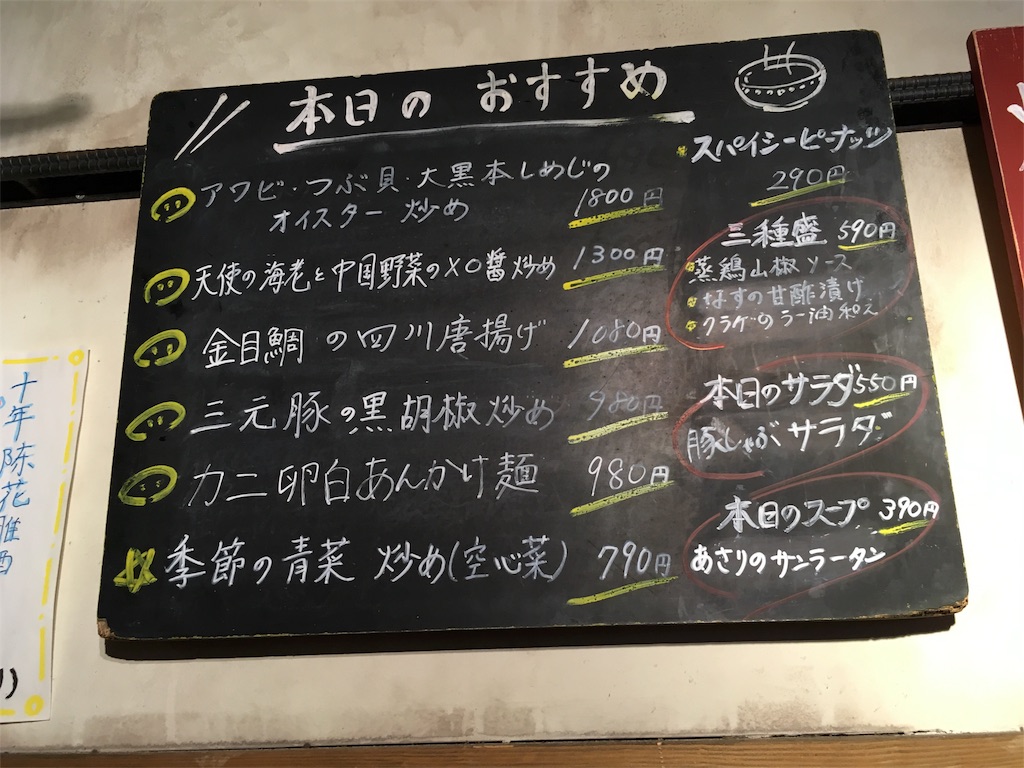 本日の おすすめ
アワビ・つぶ貝・大黒本しめじの
オイスター 炒め 1800円
天使の海老と中国野菜のXO醤炒め 1300円
金目鯛 の四川唐揚げ 1080円
三元豚の黒胡椒炒め 980円
カニ卵白あんかけ麺 980円
季節の青菜 炒め(空心菜) 790円
スパイシーピーナッツ
290円
三種盛 590円
蒸鶏山椒ソース
なすの甘酢漬け
クラゲのラー油和え
本日のサラダ 550円
豚しゃぶサラダ
本日のスープ 390円
あさりのサンラータン
十年陈花雕酒